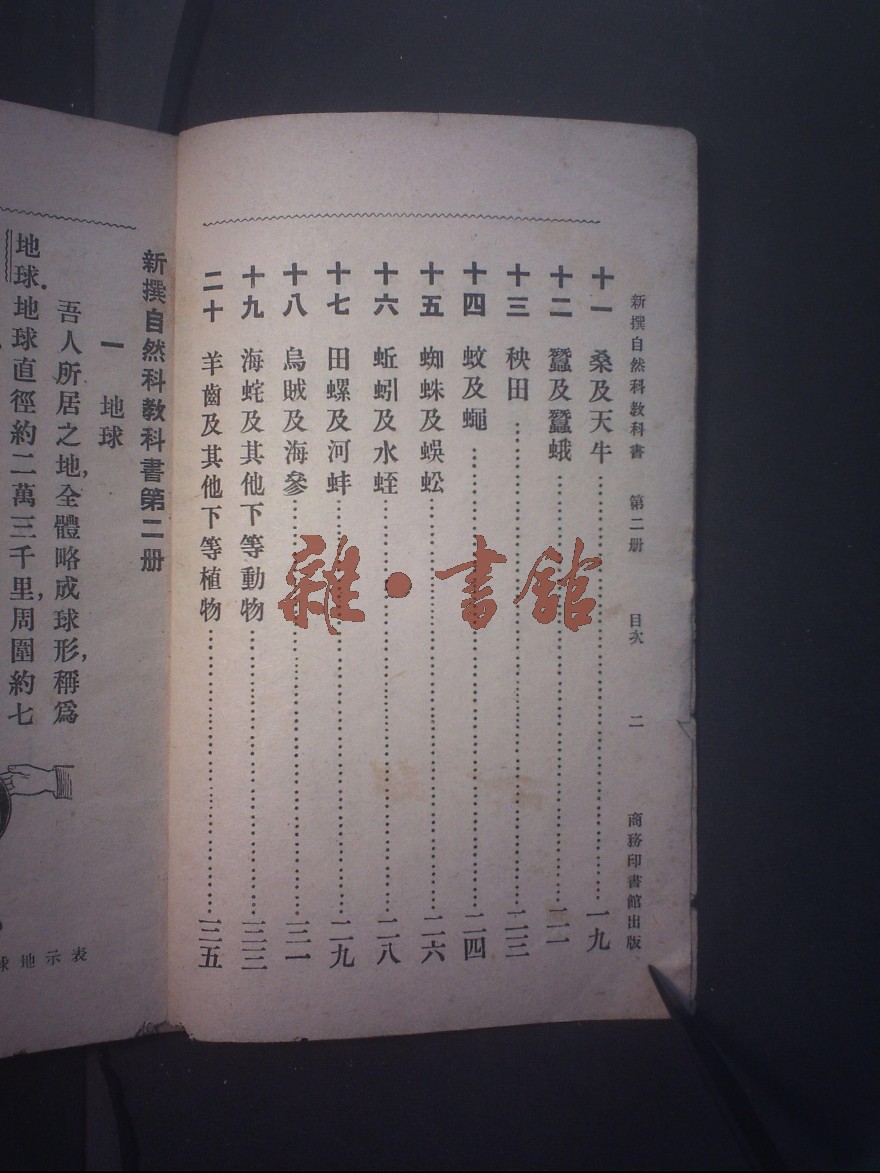 新撰自然科教科書 第二册 目次 二 商務印書館出版
十一 桑及天牛 一九
十二 蠶及蠶蛾 二一
十三 秧田 二三
十四 蚊及蠅 二四
十五 蜘蛛及蜈蚣 二六
十六 蚯蚓及水蛭 二八
十七 田螺及河蚌 二九
十八 烏賊及海參 三一
十九 海蛇及其他下等動物 三三
二十 羊齒及其他下等植物 三五
新撰自然科教科書第二册
一 地球
吾人所居之地,全體略成球形,稱爲
地球.地球直徑約二萬三千里,周圍約七
表示地球
雜·書館